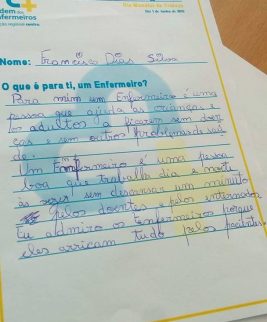 dem dos
nfermeiros
Dia Mundial da Criança
Nome: Francisco Dias Silva
O que é para ti, um Enfermeiro?
Para mim um Enfermeiro é uma
pessoa que ajuda as crianças e
os adultos a ficarem sem doen
ças e sem outros problemas de saú
de.
Um Enfermeiro é uma pessoa
boa que trabalha dia e noite
às vezes sem descansar um minuto
pelos doentes e pelos internados
Eu admiro os Enfermeiros porque
eles arriscam tudo pelos pacientes